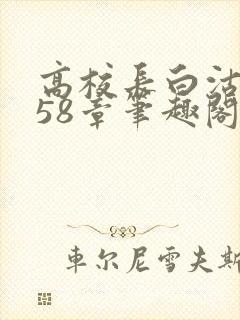 高校长白洁
58章笔趣阁
车尔尼雪夫斯